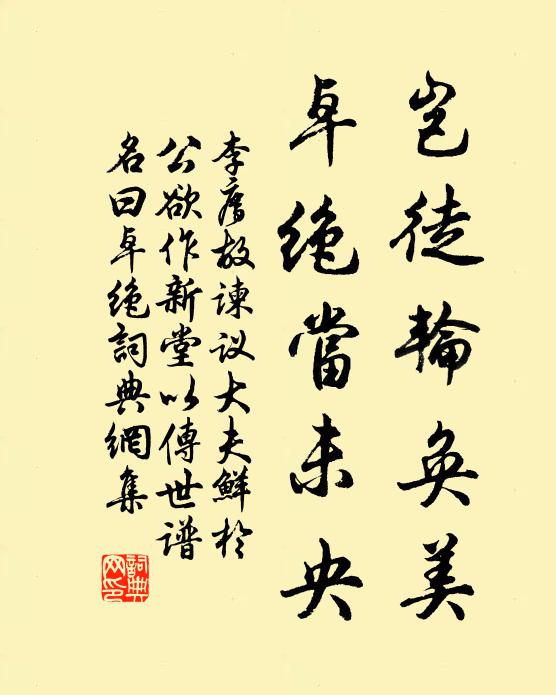 岂徒轮奂美
卓绝當未央
李廌故谏议大夫鲜于
公欲作新堂以傳世谱
名曰卓绝詞典網集
詞典
网印